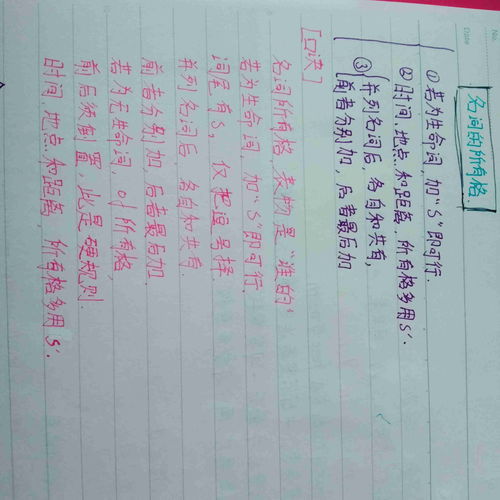 No.
Date
名词的所有格.
①若为生命词,加“S”即可行.
②时间、地点和距离,所有格多用S'.
③并列名词后,各自和共有,
前者分别加,后者最后加
[口诀]
名词所有格,表物是“谁的”
若为生命词,加“S”即可行.
词尾有S,仅把逗号择
并列名词后,各自和共有.
前者分别加,后者最后加.
若为无生命词,of所有格,
前后须倒置,此是硬规则.
时间、地点和距离,所有格多用S'.